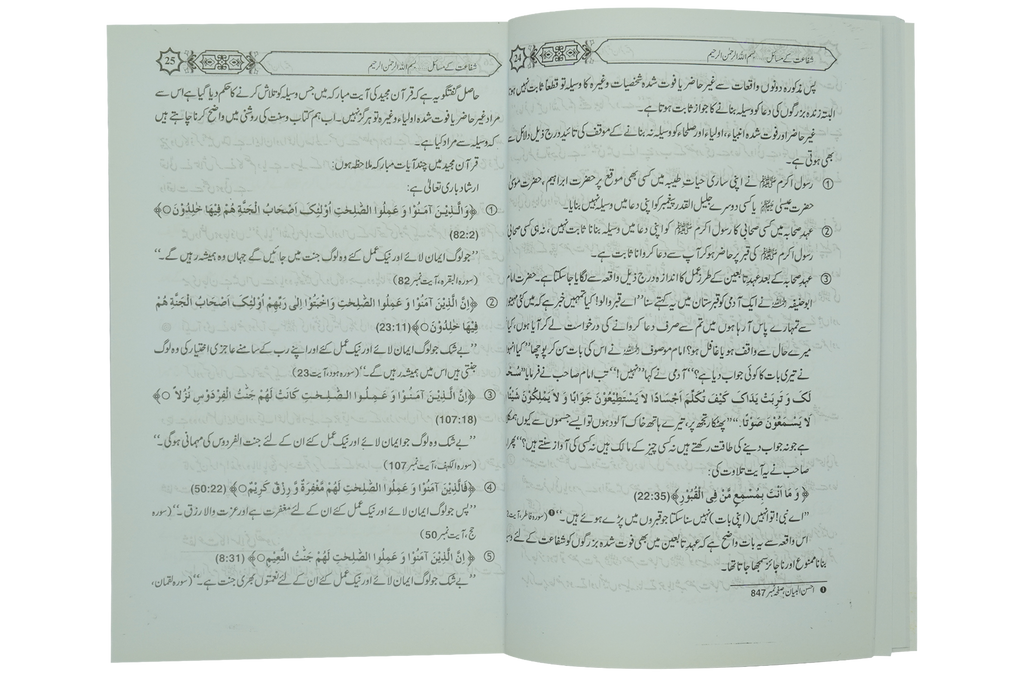 24
شفاعت کے مسائل ..... بسم اللہ الرحمٰن الرحیم
پس مذکورہ دونوں واقعات سے غیر حاضر یا فوت شدہ شخصیات وغیرہ کا وسیلہ تو قطعاً ثابت نہیں ہوتا
البتہ زندہ بزرگوں کی دعا کو وسیلہ بنانے کا جواز ثابت ہوتا ہے۔
غیر حاضر اور فوت شدہ انبیاء، اولیاء اور صلحاء کو وسیلہ نہ بنانے کے موقف کی تائید درج ذیل دلائل سے
بھی ہوتی ہے۔
① رسول اکرم ﷺ نے اپنی ساری حیات طیبہ میں کسی بھی موقع پر حضرت ابراہیم، حضرت موسیٰ
حضرت عیسیٰ ﷺ یا کسی دوسرے جلیل القدر پیغمبر کو اپنی دعا میں وسیلہ نہیں بنایا۔
② عہد صحابہ میں کسی صحابی کا رسول اکرم ﷺ کو اپنی دعا میں وسیلہ بنانا ثابت نہیں، نہ ہی کسی صحابی
رسول اکرم ﷺ کی قبر پر حاضر ہو کر آپ سے دعا کروانا ثابت ہے۔
③ عہد صحابہ کے بعد عہد تابعین کے طرز عمل کا اندازہ درج ذیل واقعہ سے لگایا جا سکتا ہے۔ حضرت امام
ابو حنیفہ رحمہ اللہ نے ایک آدمی کو قبرستان میں یہ کہتے سنا ’’اے قبر والو! کیا تمہیں خبر ہے کہ میں کئی
سے تمہارے پاس آ رہا ہوں میں تم سے صرف دعا کروانے کی درخواست لے کر آیا ہوں، کیا
میرے حال سے واقف ہو یا غافل ہو؟ امام موصوف رحمہ اللہ نے اس کی بات سن کر پوچھا ’’کیا انہوں
نے تیری بات کا کوئی جواب دیا ہے؟‘‘ آدمی نے کہا ’’نہیں!‘‘ تب امام صاحب نے فرمایا
لَکَ وَ تَرِبَتْ یَدَاکَ کَیْفَ تُکَلِّمُ اَجْسَادًا لاَ یَسْتَطِیْعُوْنَ جَوَابًا وَ لاَ یَمْلِکُوْنَ شَیْئًا
لاَ یَسْمَعُوْنَ صَوْتًا. ’’پھٹکار تجھ پر، تیرے ہاتھ خاک آلود ہوں تو ایسے جسموں سے کیوں
ہے جو نہ جواب دینے کی طاقت رکھتے ہیں نہ کسی چیز کے مالک ہیں نہ کسی کی آواز سنتے ہیں؟‘‘ پھر
صاحب نے یہ آیت تلاوت کی:
﴿ وَ مَا اَنْتَ بِمُسْمِعٍ مَّنْ فِی الْقُبُوْرِ﴾ (22:35)
’’اے نبی! تو انہیں (اپنی بات) نہیں سنا سکتا جو قبروں میں پڑے ہوئے ہیں۔‘‘❶ (سورہ فاطر، آیت
اس واقعہ سے یہ بات واضح ہے کہ عہد تابعین میں بھی فوت شدہ بزرگوں کو شفاعت کے لئے
بنانا ممنوع اور ناجائز سمجھا جاتا تھا۔
❶ احسن البیان، صفحہ نمبر 847
25
شفاعت کے مسائل ..... بسم اللہ الرحمٰن الرحیم
حاصل گفتگو یہ ہے کہ قرآن مجید کی آیت مبارکہ میں جس وسیلہ کو تلاش کرنے کا حکم دیا گیا ہے اس سے
مراد غیر حاضر یا فوت شدہ اولیاء وغیرہ تو ہرگز نہیں۔ اب ہم کتاب وسنت کی روشنی میں واضح کرنا چاہتے ہیں
کہ وسیلہ سے مراد کیا ہے۔
قرآن مجید میں چند آیات مبارکہ ملاحظہ ہوں:
ارشاد باری تعالیٰ ہے:
① ﴿وَالَّذِیْنَ آمَنُوْا وَ عَمِلُوا الصّٰلِحٰتِ اُوْلٰئِکَ اَصْحَابُ الْجَنَّةِ هُمْ فِیْهَا خٰلِدُوْنَ○﴾
(82:2)
’’جو لوگ ایمان لائے اور نیک عمل کئے وہ لوگ جنت میں جائیں گے جہاں وہ ہمیشہ رہیں گے۔‘‘
(سورہ البقرہ، آیت نمبر 82)
② ﴿اِنَّ الَّذِیْنَ آمَنُوْا وَ عَمِلُوا الصّٰلِحٰتِ وَ اَخْبَتُوْا اِلٰی رَبِّهِمْ اُوْلٰئِکَ اَصْحَابُ الْجَنَّةِ هُمْ
فِیْهَا خٰلِدُوْنَ○﴾ (23:11)
’’بے شک جو لوگ ایمان لائے اور نیک عمل کئے اور اپنے رب کے سامنے عاجزی اختیار کی وہ لوگ
جنتی ہیں اس میں ہمیشہ رہیں گے۔‘‘ (سورہ ہود، آیت 23)
③ ﴿اِنَّ الَّذِیْنَ آمَنُوْا وَ عَمِلُوا الصّٰلِحٰتِ کَانَتْ لَهُمْ جَنّٰتُ الْفِرْدَوْسِ نُزُلاً ○﴾
(107:18)
’’بے شک وہ لوگ جو ایمان لائے اور نیک عمل کئے ان کے لئے جنت الفردوس کی مہمانی ہو گی۔‘‘
(سورہ الکہف، آیت نمبر 107)
④ ﴿فَالَّذِیْنَ آمَنُوْا وَ عَمِلُوا الصّٰلِحٰتِ لَهُمْ مَّغْفِرَةٌ وَّ رِزْقٌ کَرِیْمٌ○﴾ (50:22)
’’پس جو لوگ ایمان لائے اور نیک عمل کئے ان کے لئے مغفرت ہے اور عزت والا رزق۔‘‘ (سورہ
حج، آیت نمبر 50)
⑤ ﴿ اِنَّ الَّذِیْنَ آمَنُوْا وَ عَمِلُوا الصّٰلِحٰتِ لَهُمْ جَنّٰتُ النَّعِیْمِ○﴾ (8:31)
’’بے شک جو لوگ ایمان لائے اور نیک عمل کئے ان کے لئے نعمتوں بھری جنت ہے۔‘‘ (سورہ لقمان،